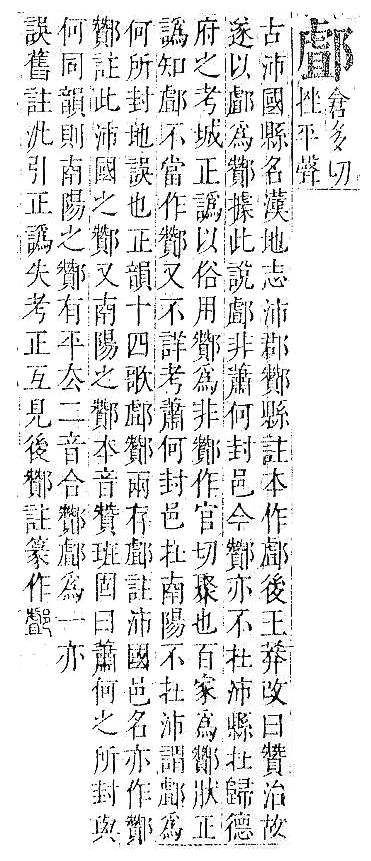 䣜
倉多切
挫平聲
古沛國縣名漢地志沛郡酇縣註本作䣜後王莽改曰贊治故
遂以䣜為酇據此說䣜非蕭何封邑今酇亦不在沛縣在歸德
府之考城正譌以俗用酇為非酇作官切聚也百家為酇狀正
譌知䣜不當作酇又不詳考蕭何封邑在南陽不在沛謂䣜為
何所封地誤也正韻十四歌䣜酇兩存䣜註沛國邑名亦作酇
酇註此沛國之酇又南陽之酇本音贊班固曰蕭何之所封與
何同韻則南陽之酇有平去二音合酇䣜為一亦
誤舊註汎引正譌失考正互見後酇註篆作